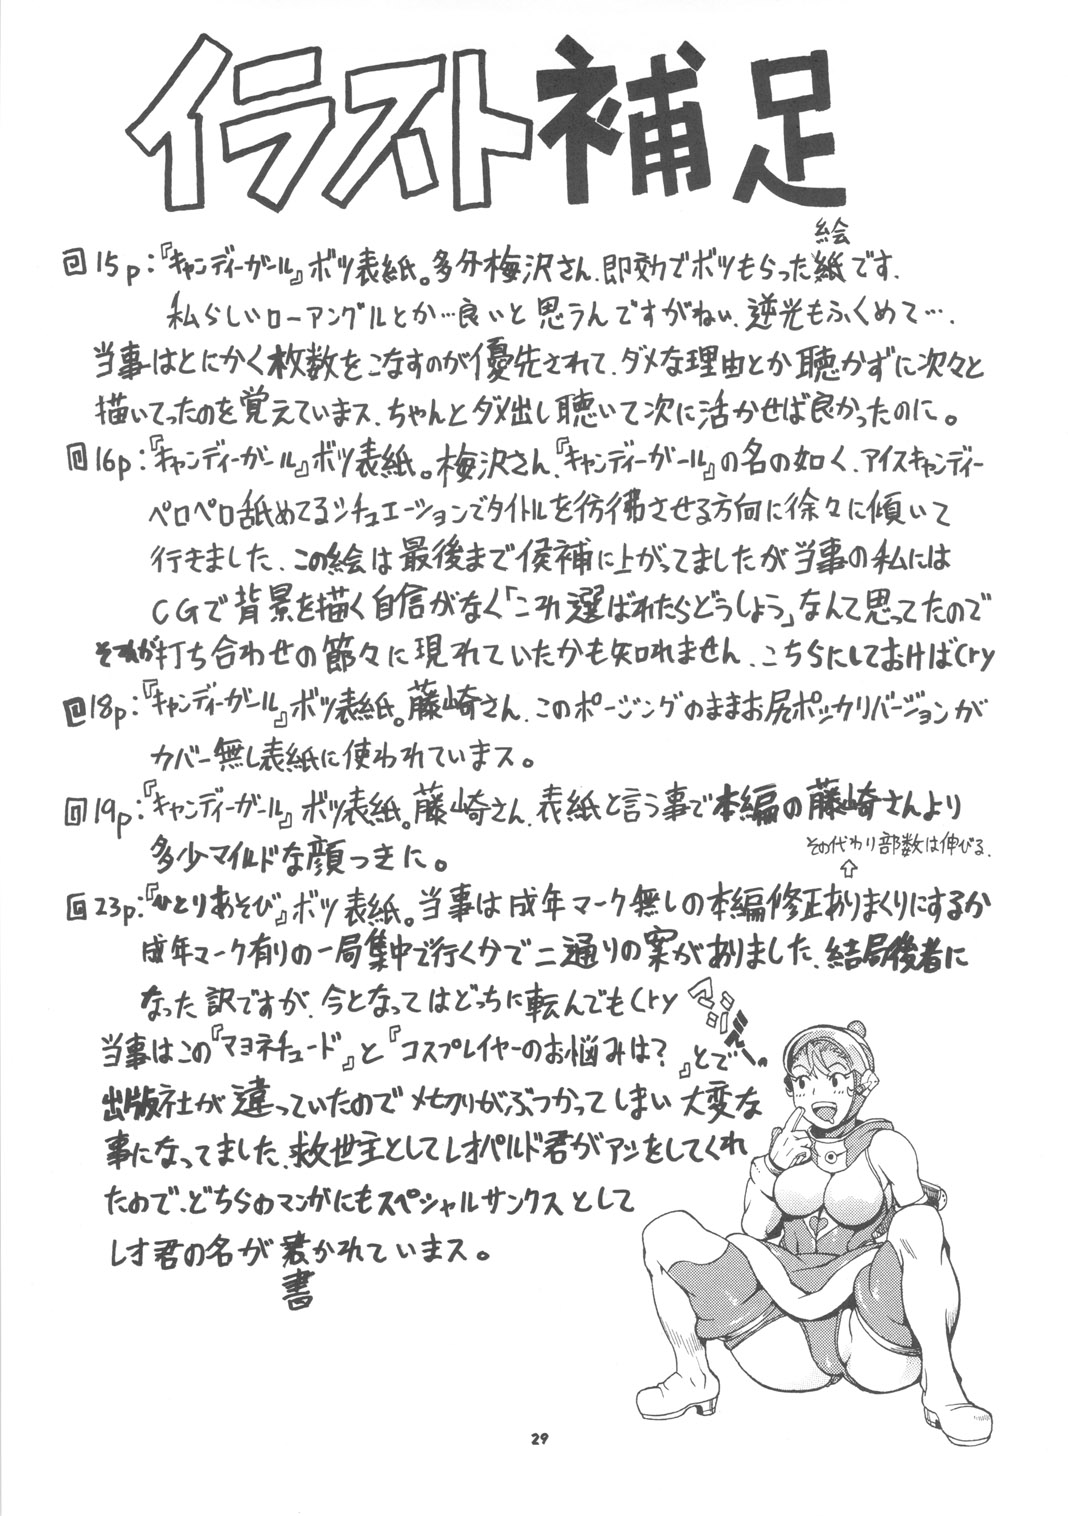 イラスト補足
回15p:『キャンディーガール』ボツ表紙。多分梅沢さん、即効でボツもらった紙です、
絵
私らしいローアングルとか…良いと思うんですがねぃ、逆光もふくめて…、
当事はとにかく枚数をこなすのが優先されて、ダメな理由とか聴かずに次々と
描いてったのを覚えていまス、ちゃんとダメ出し聴いて次に活かせば良かったのに。
回16p:『キャンディーガール』ボツ表紙。梅沢さん、『キャンディーガール』の名の如く、アイスキャンディー
ペロペロ舐めてるシチュエーションでタイトルを彷彿させる方向に徐々に傾いて
行きました、この絵は最後まで候補に上がってましたが当事の私には
CGで背景を描く自信がなく「これ選ばれたらどうしよう」なんて思ってたので
それが打ち合わせの節々に現れていたかも知れません、こちらにしておけばCry
@18p:『キャンディーガール』ボツ表紙。藤崎さん、このポージングのままお尻ポッカリバージョンが
カバー無し表紙に使われていまス。
回19p:『キャンディーガール』ボツ表紙。藤崎さん、表紙と言う事で本編の藤崎さんより
多少マイルドな顔つきに。
その代わり部数は伸びる、
回23p:『ひとりあそび』ボツ表紙。当事は成年マーク無しの本編修正ありまくりにするか
成年マーク有りの一局集中で行くかで二通りの案がありました、結局後者に
なった訳ですが、今となってはどっちに転んでもCry
当事はこの『マヨネチュード』と『コスプレイヤーのお悩みは?』とで
出版社が違っていたのでメセクリがぶつかってしまい大変な
事になってました、救世主としてレオパルド君がアシをしてくれ
たので、どちらのマンガにもスペシャルサンクスとして
レオ君の名が書かれていまス。
書
29